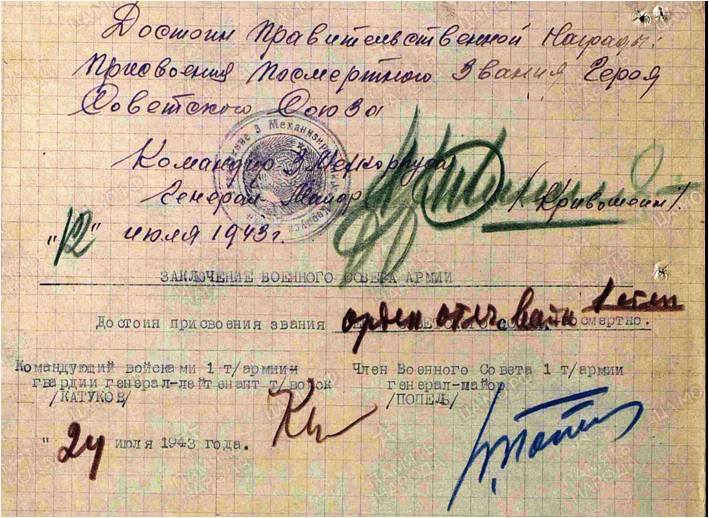 Достоин правительственной награды:
Присвоения посмертного звания Героя
Советского Союза
Командир 3 Мехкорпуса
Генерал-майор /Кривошеин/
"12" июля 1943г.
ЗАКЛЮЧЕНИЕ ВОЕННОГО СОВЕТА АРМИИ
Достоин присвоения звания орден отеч войны 1 степ посмертно.
Командующий войсками 1 т/армиии
гвардии генерал-лейтенант т/войск
/КАТУКОВ/
Член Военного Совета 1 т/армии
генерал-майор
/ПОПЕЛЬ/
"24 июля 1943 года.